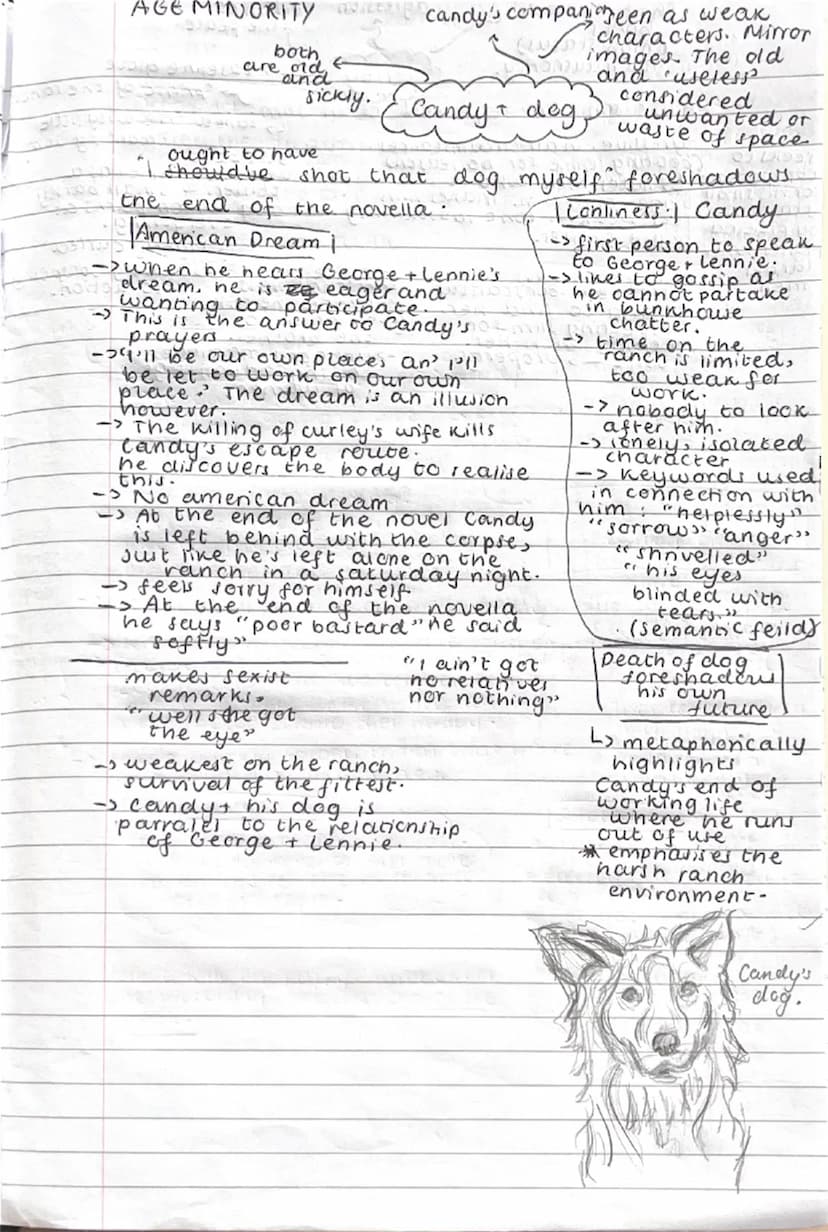 AGE MINORITY
candy's companion
seen as weak
characters. Mirror
images. The old
and 'useless'
considered
unwanted or
waste of space
both
are old
and
sickly.
Candy + dog
ought to have
"I should've shot that dog myself" foreshadows
the end of the novella.
American Dream
-> when he hears George + Lennie's
dream. he is eager and
wanting to participate.
-> This is the answer to Candy's
prayers
-> "I'll be our own place, an' I'll
be let to work on our own
place." The dream is an illusion
however.
-> The killing of curley's wife kills
Candy's escape route.
he discovers the body to realise
this.
-> No american dream
-> At the end of the novel Candy
is left behind with the corpse,
just like he's left alone on the
ranch in a saturday night.
-> feels sorry for himself.
-> At the end of the novella
he says "poor bastard" he said
softly"
Lonliness. Candy
-> first person to speak
to George + Lennie.
-> likes to gossip as
he cannot partake
in bunkhouse
chatter.
-> time on the
ranch is limited,
too weak for
work.
-> nobody to look
after him.
-> lonely, isolated
character
-> Keywords used
in connection with
him : "helplessly"
"sorrow" "anger"
"shrivelled"
"his eyes
blinded with
tears."
(semantic feild)
makes sexist
remarks.
"well she got
the eye"
"I ain't got
no relatives
nor nothing"
-> weakest on the ranch,
survival of the fittest.
-> candy + his dog is
parralel to the relationship
of George + Lennie.
Death of dog
foreshadow
his own
future
↳ metaphorically
highlights
Candy's end of
working life
where he runs
out of use
* emphasises the
harsh ranch
environment-
Candy's
dog.